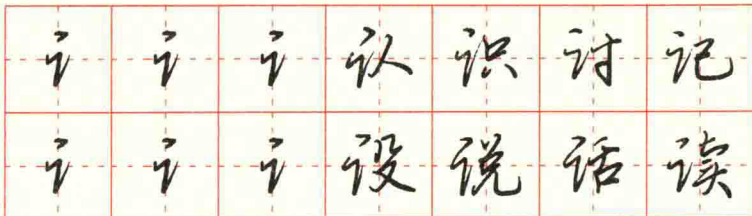 讠讠讠认识讨记
讠讠讠设说话读